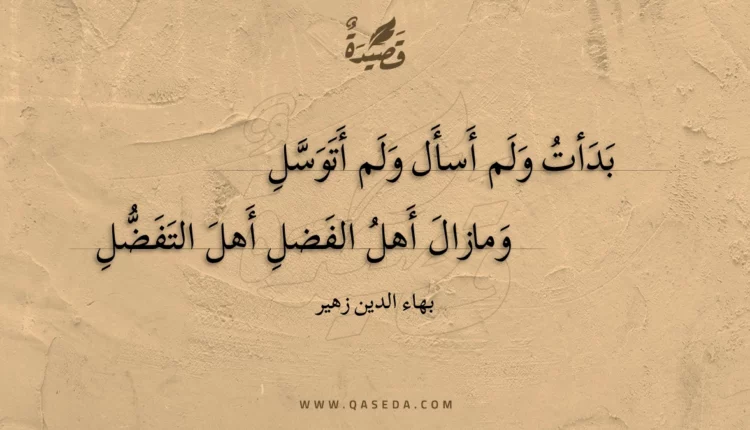 قَصِيدَةٌ
بَدَأتُ وَلَم أَسأَل وَلَم أَتَوَسَّلِ
وَمازالَ أَهلُ الفَضلِ أَهلَ التَفَضُّلِ
بهاء الدين زهير
WWW.QASEDA.COM